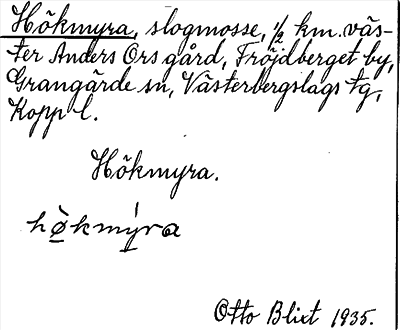 Hökmyra, slogmosse, 1/2 km. väs-
ter Anders Ors gård, Fröjdberget by,
Grangärde sn, Västerbergslags tg,
Kopp l.
Hökmyra.
hö̀kmýra
Otto Blixt 1935.